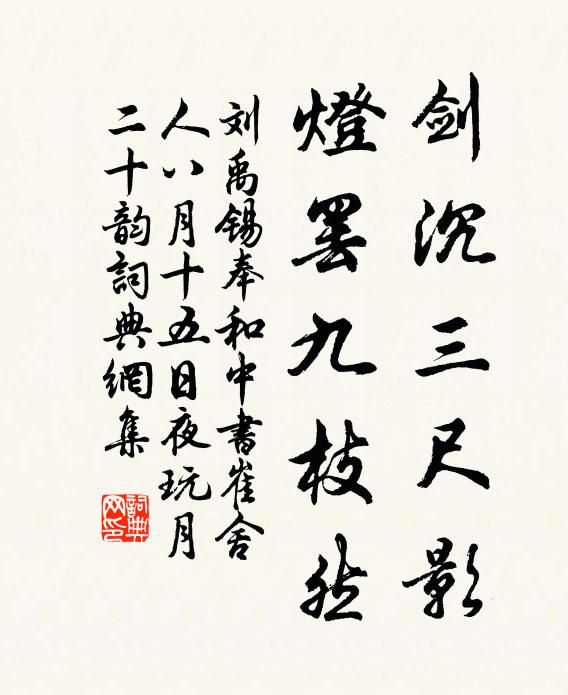 剑沉三尺影
燈罢九枝然
刘禹锡奉和中書崔舍
人八月十五日夜玩月
二十韵詞典網集
詞典网印